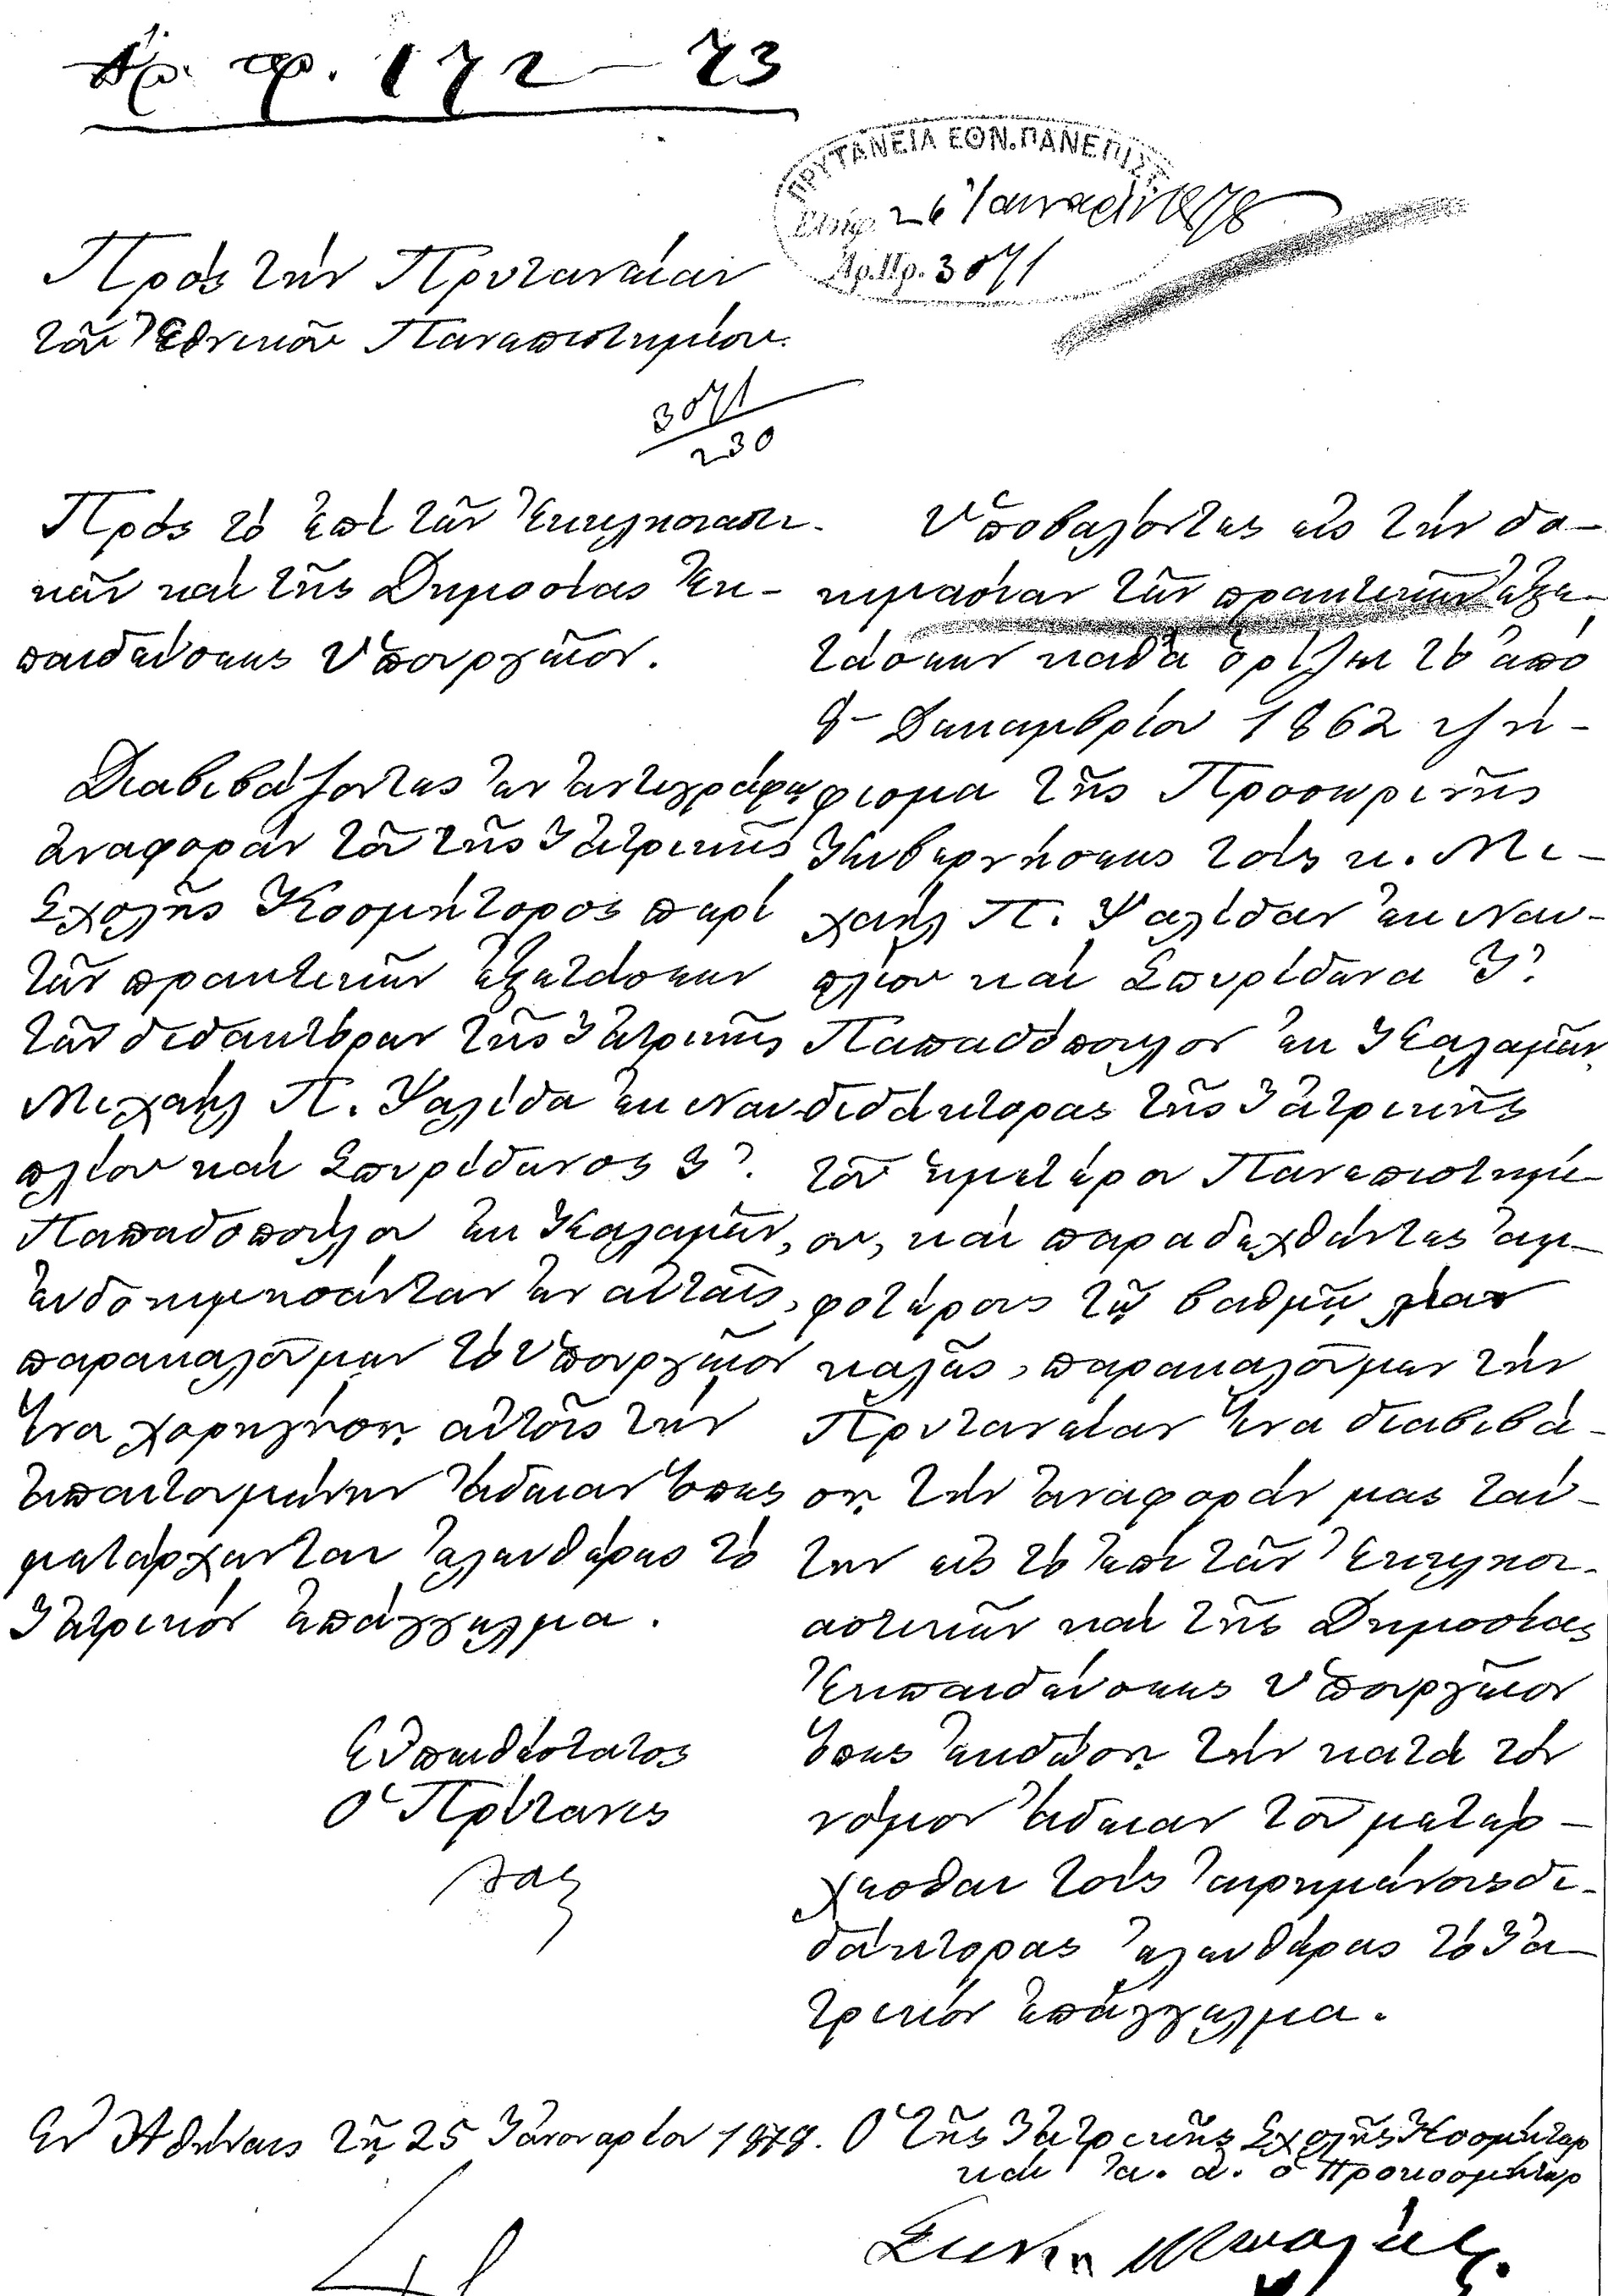 Ἀρ. πρ. 172-73
ΠΡΥΤΑΝΕΙΑ ΕΘΝ. ΠΑΝΕΠΙΣΤ.
26 Ἰανουαρ. 1878
Ἀρ. Πρ. 3071
Πρὸς τὴν Πρυτανείαν
τοῦ Ἐθνικοῦ Πανεπιστημίου.
3071
230
Πρὸς τὸ ἐπὶ τῶν Ἐκκλησιαστι-
κῶν καὶ τῆς Δημοσίας Ἐκ-
παιδεύσεως Ὑπουργεῖον.
Διαβιβάζοντες ἐν ἀντιγράφῳ
ἀναφορὰν τοῦ τῆς Ἰατρικῆς
Σχολῆς Κοσμήτορος περὶ
τῶν πρακτικῶν ἐξετάσεων
τῶν διδακτόρων τῆς Ἰατρικῆς
Μιχαὴλ Π. Ψαλίδα ἐκ Ναυ-
πλίου καὶ Σπυρίδωνος Ἰ.
Παπαδοπούλου ἐκ Καλαμῶν,
εὐδοκιμησάντων ἐν αὐταῖς,
παρακαλοῦμεν τὸ Ὑπουργεῖον
ἵνα χορηγήσῃ αὐτοῖς τὴν
ἀπαιτουμένην ἄδειαν ὅπως
μετέρχωνται ἐλευθέρως τὸ
Ἰατρικὸν ἐπάγγελμα.
Εὐπειθέστατος
Ὁ Πρύτανις
Ὑποβαλόντες εἰς τὴν δο-
κιμασίαν τῶν πρακτικῶν ἐξε-
τάσεων καθὰ ὁρίζει τὸ ἀπὸ
8 Δεκεμβρίου 1862 ψή-
φισμα τῆς Προσωρινῆς
Κυβερνήσεως τοὺς κ. Μι-
χαὴλ Π. Ψαλίδαν ἐκ Ναυ-
πλίου καὶ Σπυρίδωνα Ἰ.
Παπαδόπουλον ἐκ Καλαμῶν,
διδάκτορας τῆς Ἰατρικῆς
τοῦ ἡμετέρου Πανεπιστημί-
ου, καὶ παραδεχθέντες ἀμ-
φοτέρους τῷ βαθμῷ λίαν
καλῶς, παρακαλοῦμεν τὴν
Πρυτανείαν ἵνα διαβιβά-
σῃ τὴν ἀναφοράν μας ταύ-
την εἰς τὸ ἐπὶ τῶν Ἐκκλησι-
αστικῶν καὶ τῆς Δημοσίας
Ἐκπαιδεύσεως Ὑπουργεῖον
ὅπως ἐκδώσῃ τὴν κατὰ τὸν
νόμον ἄδειαν τοῦ μετέρ-
χεσθαι τοὺς εἰρημένους δι-
δάκτορας ἐλευθέρως τὸ Ἰα-
τρικὸν ἐπάγγελμα.
Ἐν Ἀθήναις τῇ 25 Ἰανουαρίου 1878. Ὁ τῆς Ἰατρικῆς Σχολῆς Κοσμήτωρ
καὶ ἀ. ἀ. ὁ Προκοσμήτωρ